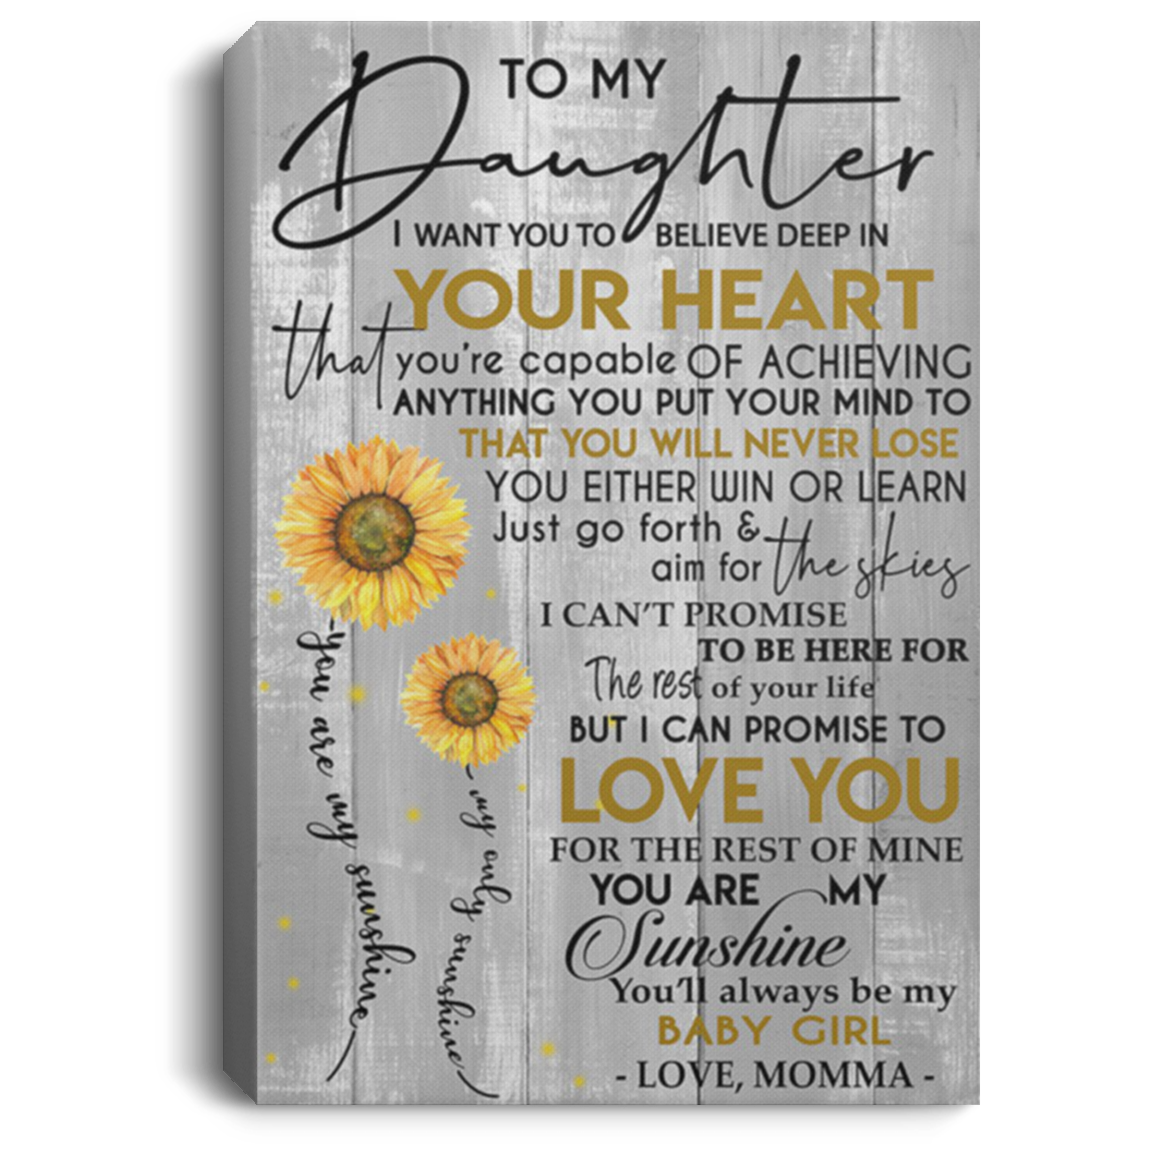 TO MY
Daughter
I WANT YOU TO BELIEVE DEEP IN
YOUR HEART
that you're capable OF ACHIEVING
ANYTHING YOU PUT YOUR MIND TO
THAT YOU WILL NEVER LOSE
YOU EITHER WIN OR LEARN
Just go forth &
aim for the skies
I CAN'T PROMISE
TO BE HERE FOR
The rest of your life
BUT I CAN PROMISE TO
LOVE YOU
FOR THE REST OF MINE
YOU ARE MY
Sunshine
You'll always be my
BABY GIRL
- LOVE, MOMMA -
you are my sunshine
my only sunshine